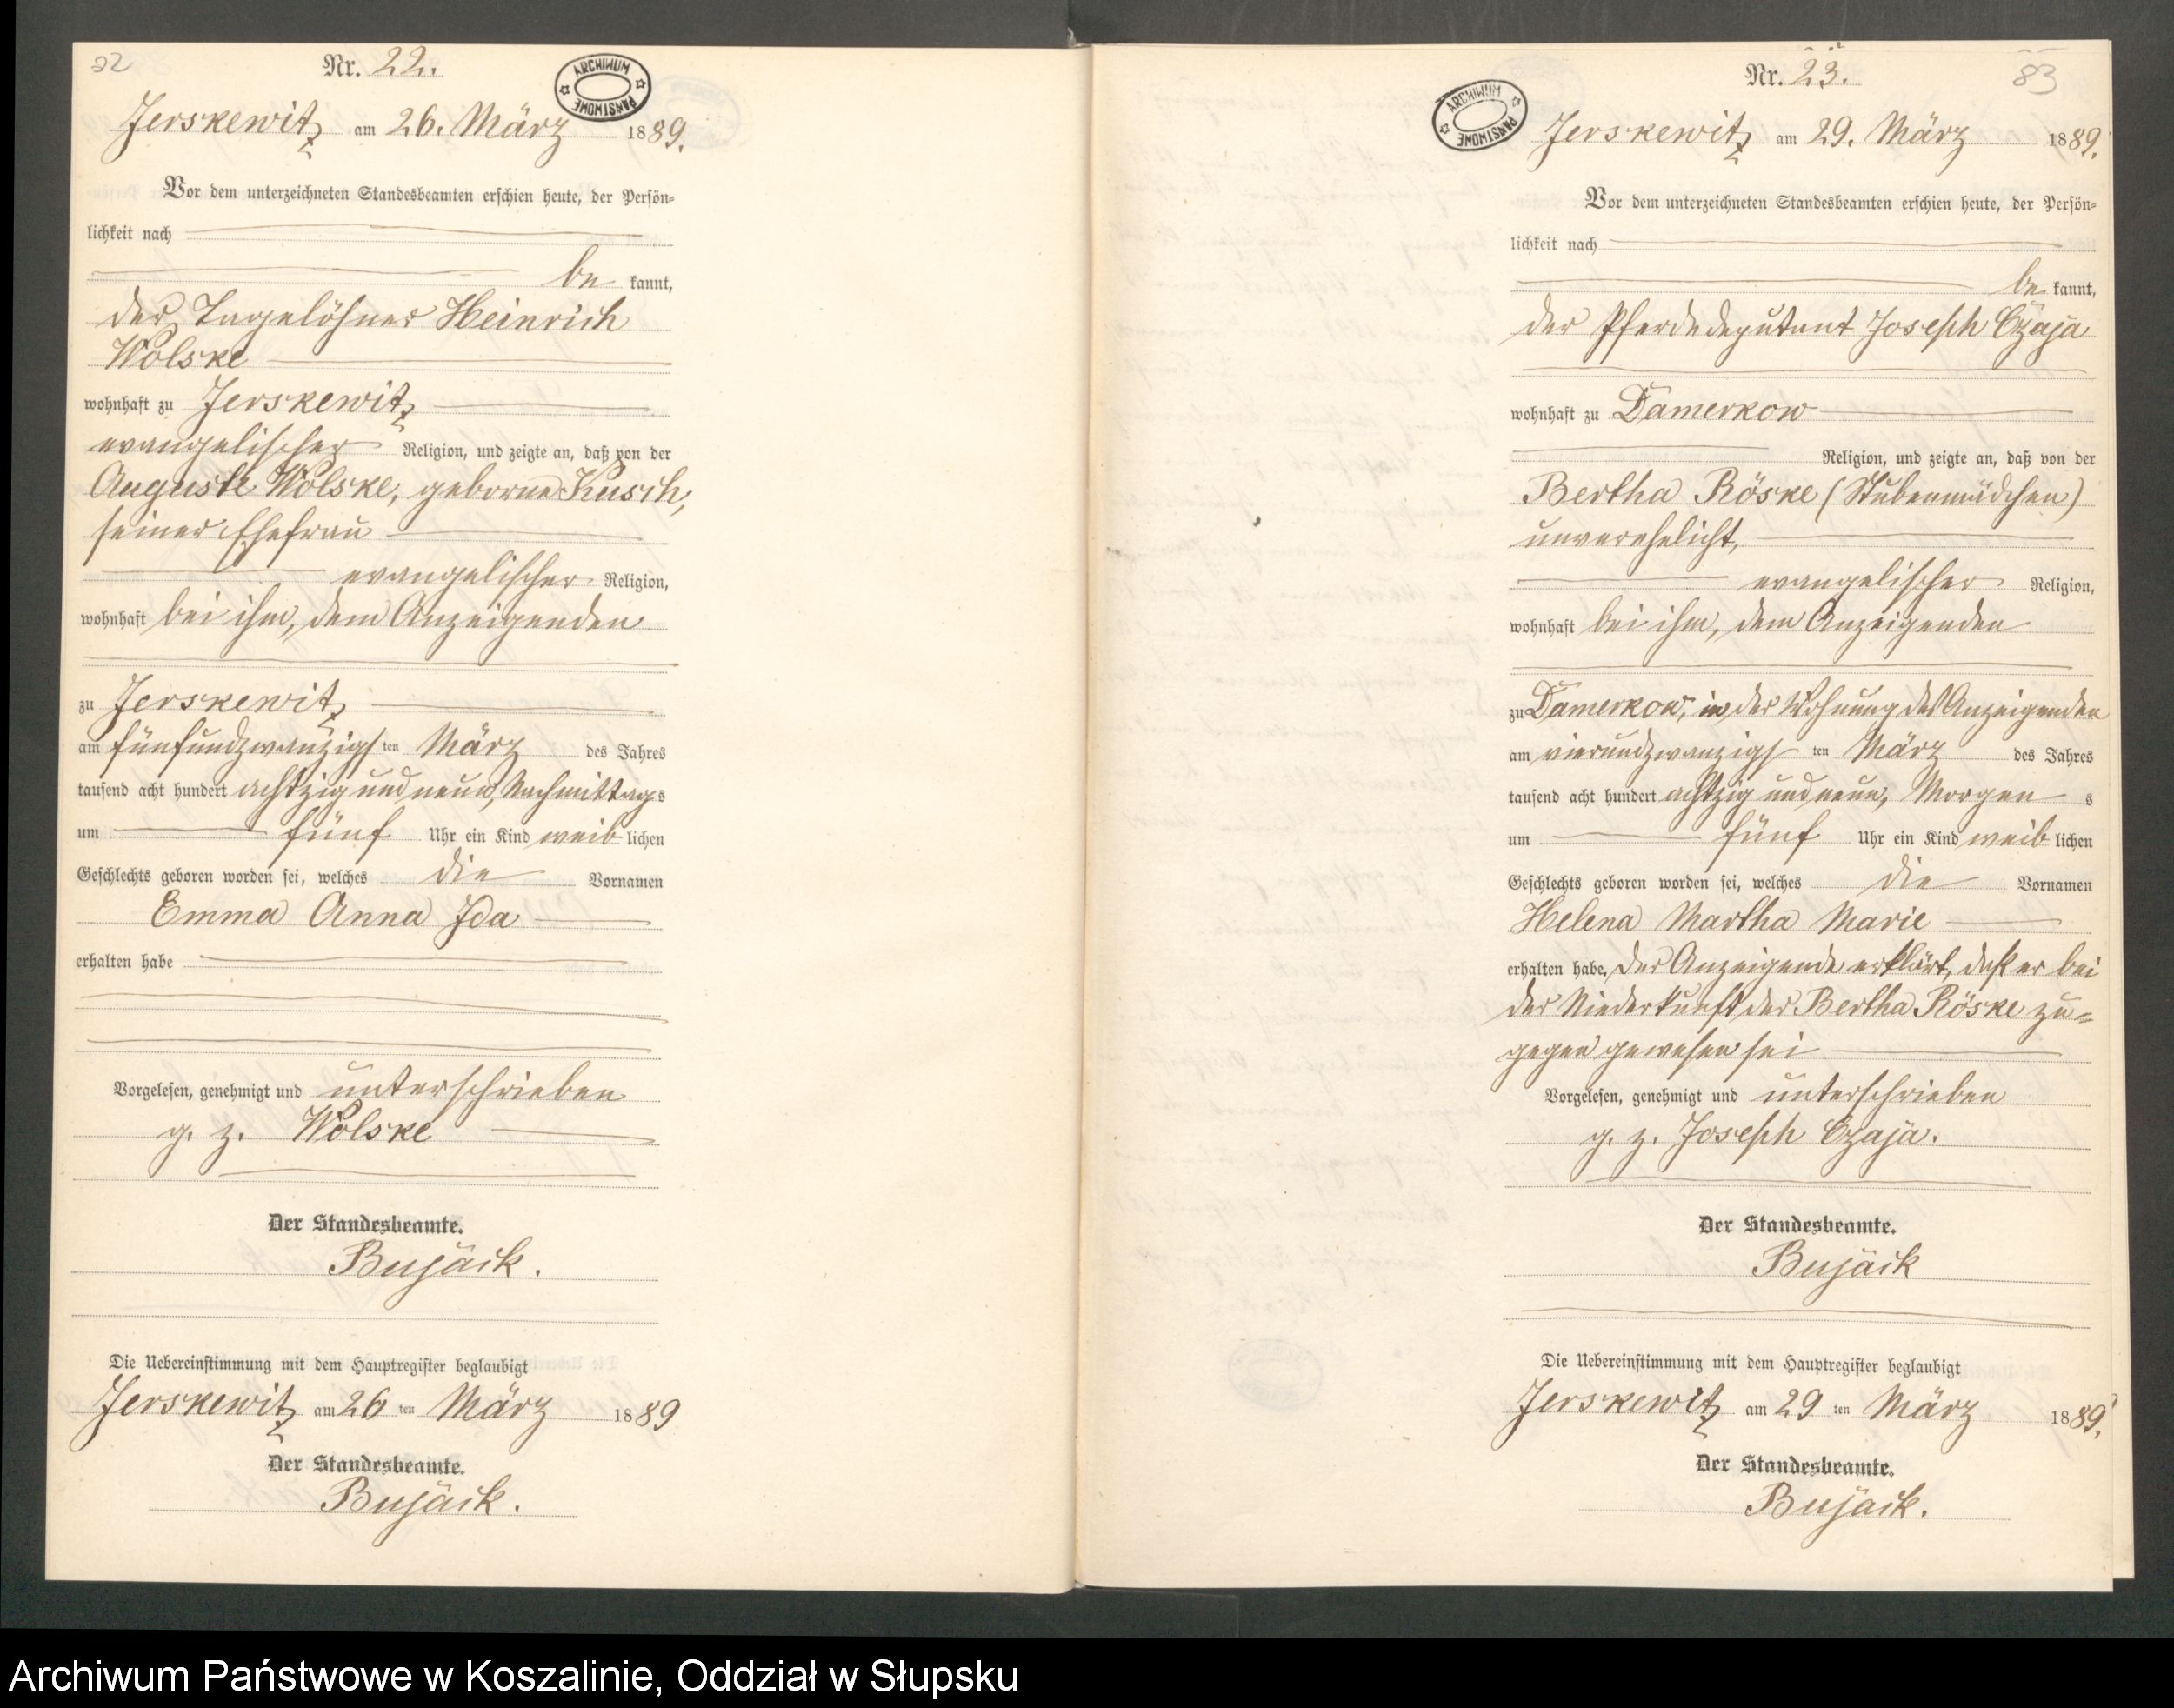 82
Nr. 22.
ARCHIWUM PAŃSTWOWE
Jerskewitz am 26. März 1889.
Vor dem unterzeichneten Standesbeamten erschien heute, der Persön-
lichkeit nach
be kannt,
der Tagelöhner Heinrich
Wolske
wohnhaft zu Jerskewitz
evangelischer Religion, und zeigte an, daß von der
Auguste Wolske, geborne Kusch,
seiner Ehefrau
evangelischer Religion,
wohnhaft bei ihm, dem Anzeigenden
zu Jerskewitz
am fünfundzwanzigs ten März des Jahres
tausend acht hundert achtzig und neun, Nachmittags
um fünf Uhr ein Kind weib lichen
Geschlechts geboren worden sei, welches die Vornamen
Emma Anna Ida
erhalten habe
Vorgelesen, genehmigt und unterschrieben
g. z. Wolske
Der Standesbeamte.
Bujäck.
Die Uebereinstimmung mit dem Hauptregister beglaubigt
Jerskewitz am 26 ten März 1889
Der Standesbeamte.
Bujäck.
Nr. 23.
83
ARCHIWUM PAŃSTWOWE
Jerskewitz am 29. März 1889.
Vor dem unterzeichneten Standesbeamten erschien heute, der Persön-
lichkeit nach
be kannt,
der Pferdedeputant Joseph Czaja
wohnhaft zu Damerkow
Religion, und zeigte an, daß von der
Bertha Röske (Stubenmädchen)
unverehelicht,
evangelischer Religion,
wohnhaft bei ihm, dem Anzeigenden
zu Damerkow, in der Wohnung des Anzeigenden
am vierundzwanzigs ten März des Jahres
tausend acht hundert achtzig und neun, Morgen s
um fünf Uhr ein Kind weib lichen
Geschlechts geboren worden sei, welches die Vornamen
Helena Martha Marie
erhalten habe. Der Anzeigende erklärt, daß er bei
der Niederkunft der Bertha Röske zu-
gegen gewesen sei
Vorgelesen, genehmigt und unterschrieben
g. z. Joseph Czaja.
Der Standesbeamte.
Bujäck
Die Uebereinstimmung mit dem Hauptregister beglaubigt
Jerskewitz am 29 ten März 1889.
Der Standesbeamte.
Bujäck.
Archiwum Państwowe w Koszalinie, Oddział w Słupsku